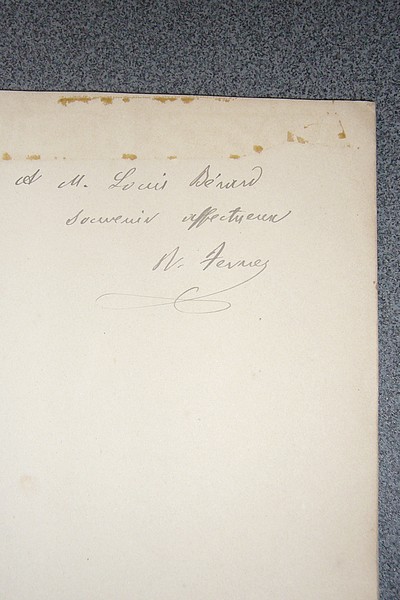 à M. Louis Bérard
souvenir affectueux